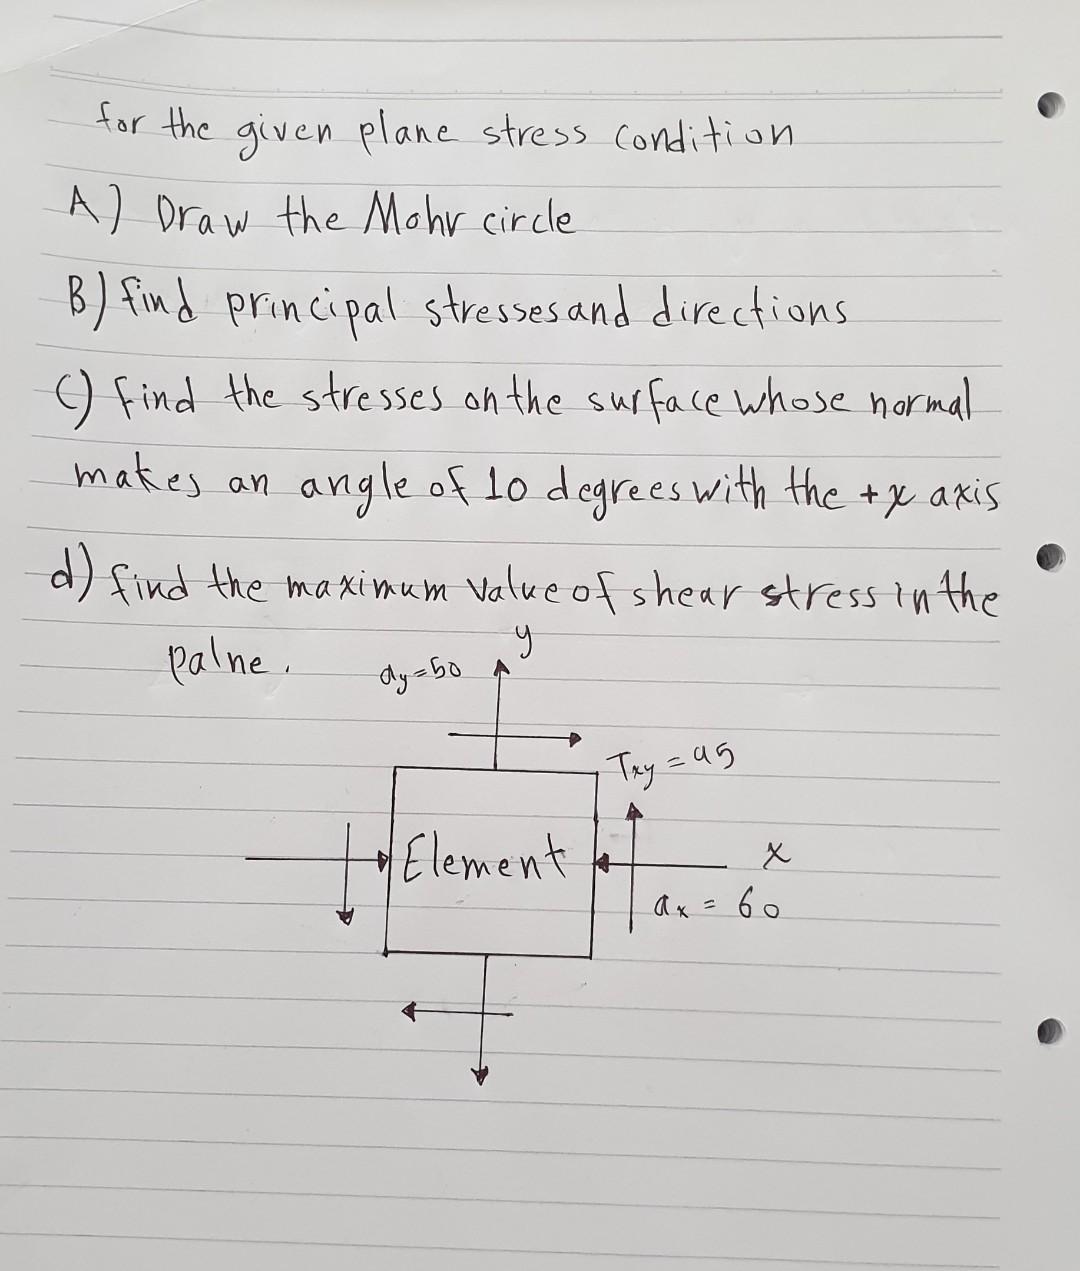 for the given plane stress condition
A) Draw the Mohr circle
B) find principal stresses and directions
C) find the stresses on the surface whose normal
makes an angle of 10 degrees with the +x axis
d) find the maximum value of shear stress in the
palne.
y
σy=50
Txy = 45
Element
x
σx = 60